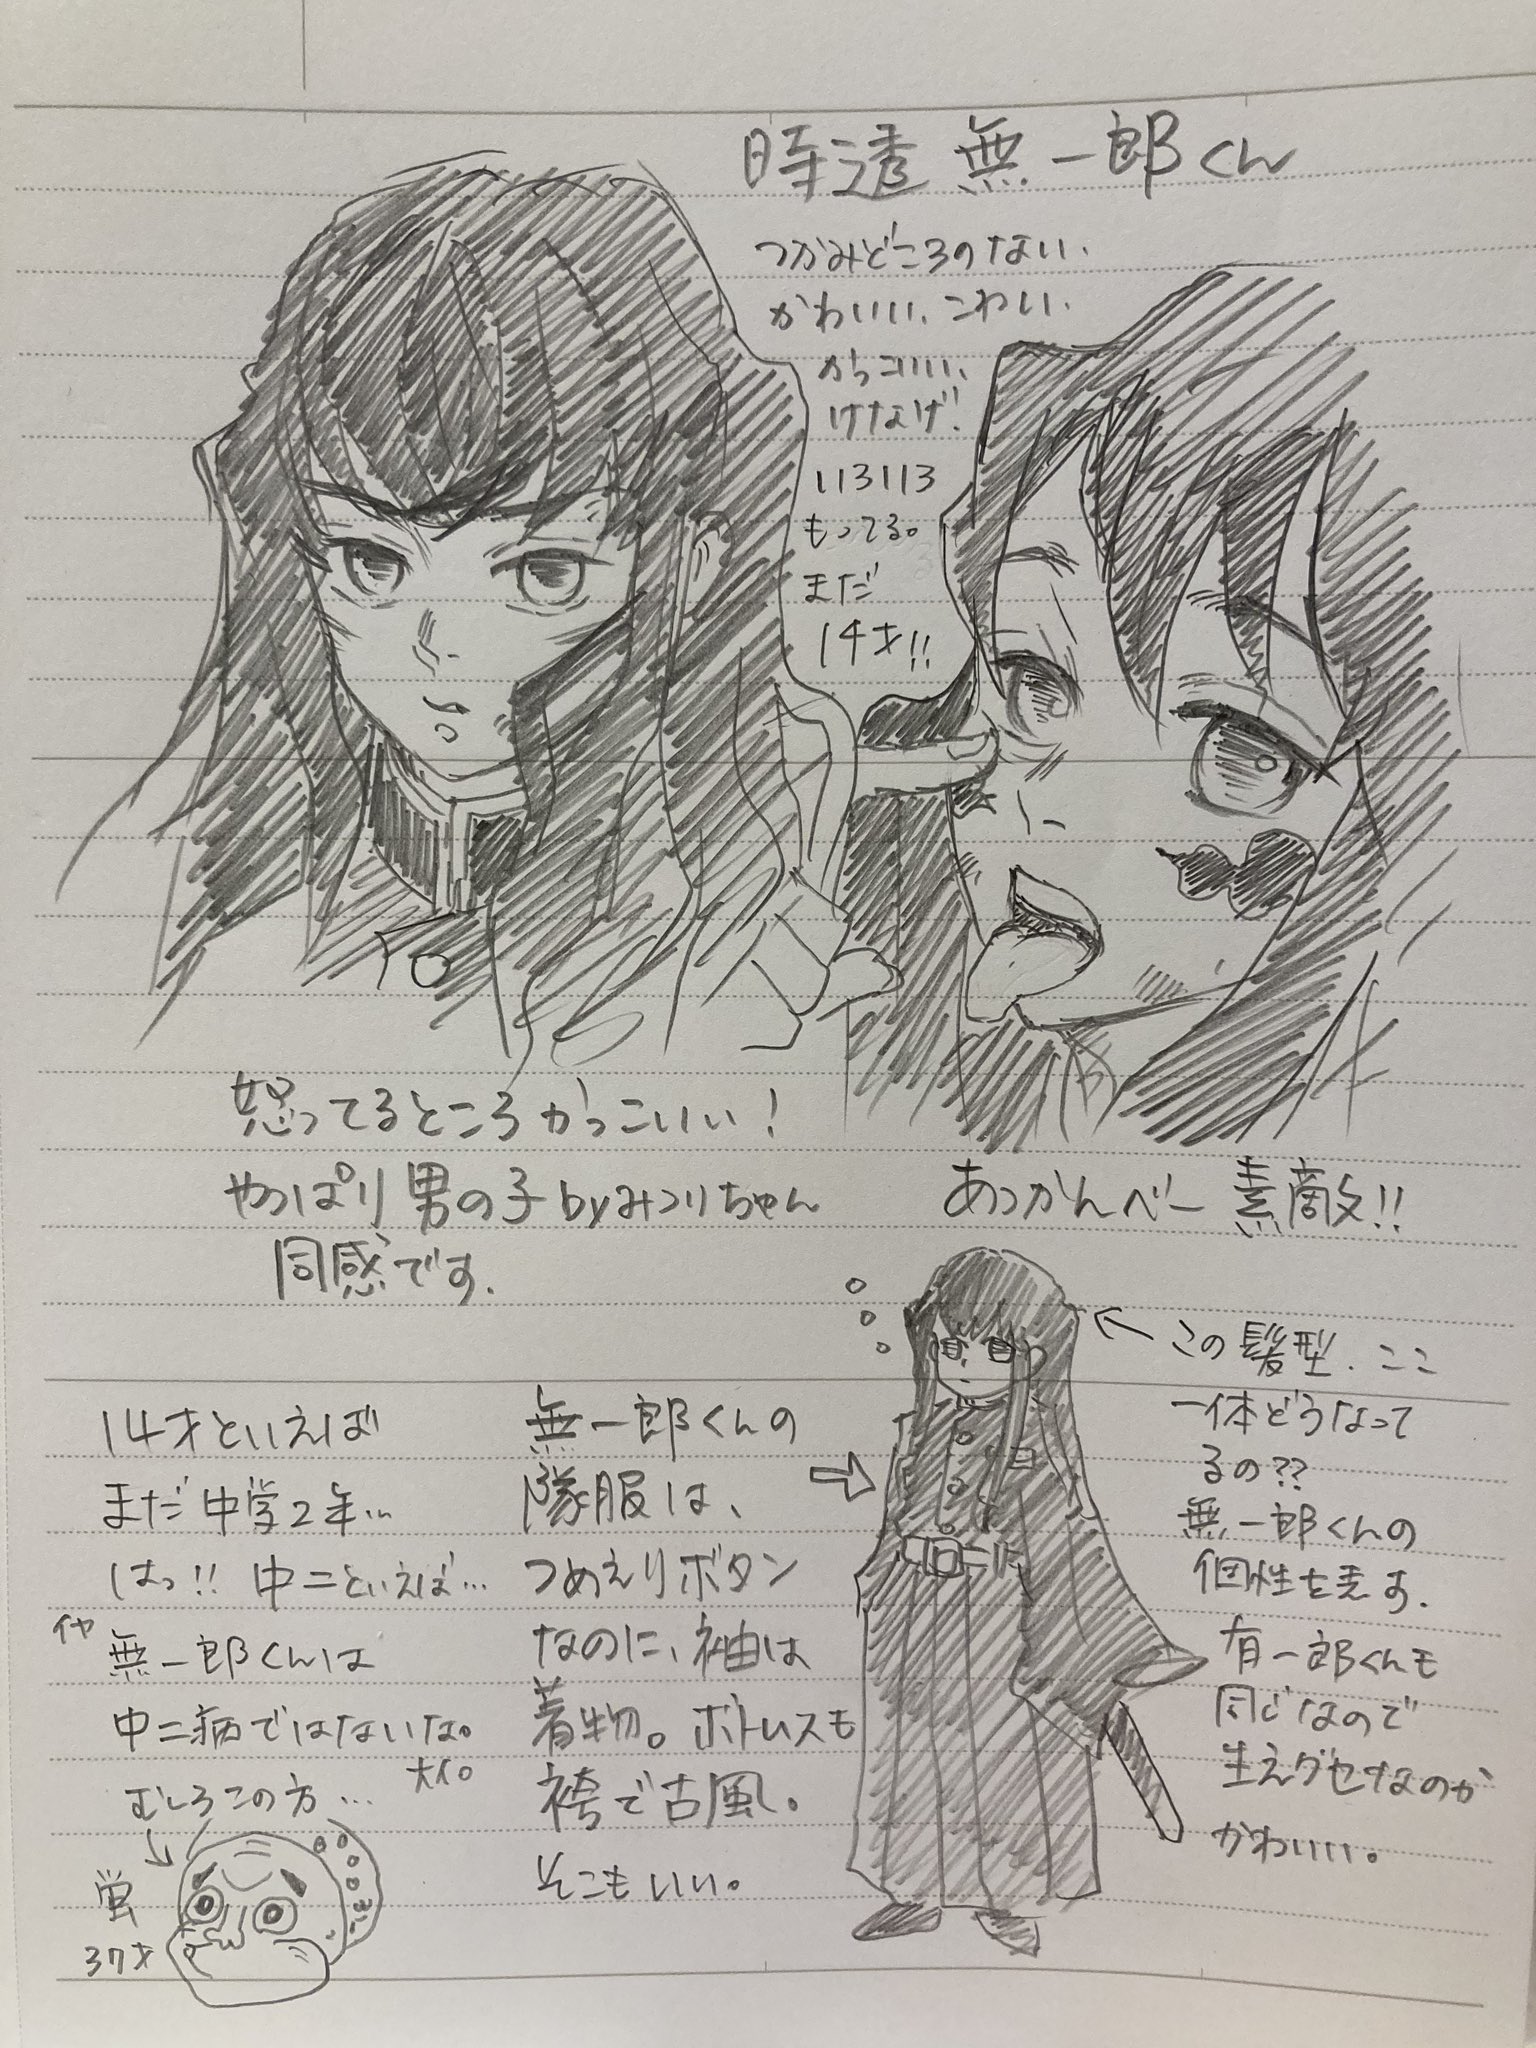 時透無一郎くん
つかみどころのない、
かわいい、こわい、
かっこいい、
けなげ、
いろいろ
もってる。
まだ
14才!!
怒ってるところかっこいい！
やっぱり男の子byみつりちゃん
同感です。
あっかんべー素敵!!
14才といえば
まだ中学2年…
はっ!! 中二といえば…
イヤ
無一郎くんは
中二病ではないな。
むしろこの方…
蛍
37才
無一郎くんの
隊服は、
つめえりボタン
なのに、袖は
着物。ボトムスも
袴で古風。
そこもいい。
この髪型、ここ
一体どうなって
るの??
無一郎くんの
個性を表す。
有一郎くんも
同じなので
生えグセなのか
かわいい。